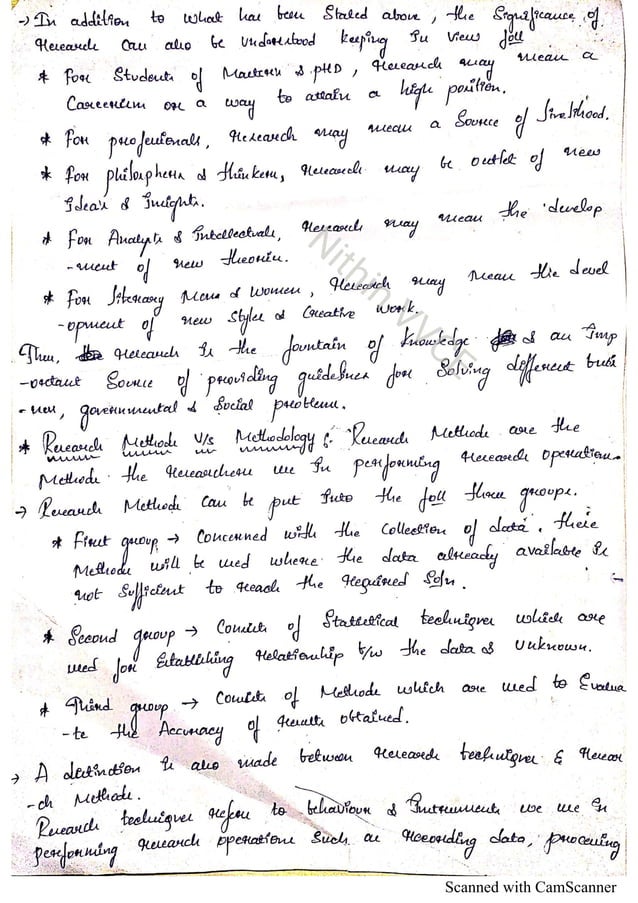 → In addition to what has been stated above, the Significance of
Research can also be understood keeping in view foll
* For Students of Masters & PHD, research may mean a
Careerism or a way to attain a high position.
* For professionals, research may mean a Source of livelihood.
* For philosophers & thinkers, research may be outlet of new
Idea's & Insights.
* For Analysts & Intellectuals, research may mean the develop
-ment of new theories.
* For literary Mens & Women, research may mean the devel
-opment of new styles & Creative work.
Thus, research is the fountain of knowledge & an Imp
-ortant Source of providing guidelines for Solving different busi
-ness, governmental & Social problems.
* Research Methods V/s Methodology :- Research Methods are the
Methods the researchers use in performing research operations.
→ Research Methods can be put into the foll three groups.
* First group → Concerned with the Collection of data. these
Methods will be used where the data already available is
not Sufficient to reach the required Soln.
* Second group → Consists of Statistical techniques which are
used for Establishing relationship b/w the data & Unknown.
* Third group → Consists of Methods which are used to Evalua
-te the Accuracy of results obtained.
→ A distinction is also made between research techniques & Resear
-ch Methods.
Research techniques refers to behaviour & Instruments we use in
performing research operations Such as recording data, processing
Nithin VVCE
Scanned with CamScanner